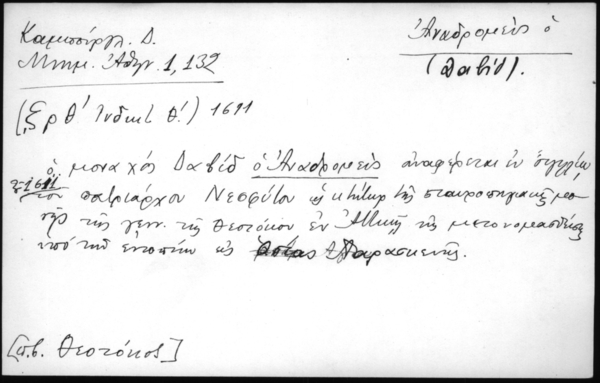 Καμπούργλ. Δ.
Μνημ. Ἀθην. 1, 132
Ἀναδρομεὺς ὁ
(Δαβίδ).
(ζρθ΄ Ἰνδικτ θ΄.) 1611
ὁ μοναχός Δαβίδ ὁ Ἀναδρομεὺς ἀναφέρεται ἐν σιγιλίῳ
1611
τοῦ πατριάρχου Νεοφύτου ὡς κτήτωρ τῆς σταυροπηγιακῆς μο
νῆς τῆς γενν. τῆς Θεοτόκου ἐν Ἀττικῇ τῆς μετονομασθείσης
ὑπό τῶν ἐντοπίων ὡς Ἁγίας Παρασκευῆς.
[π.β. Θεοτόκος]